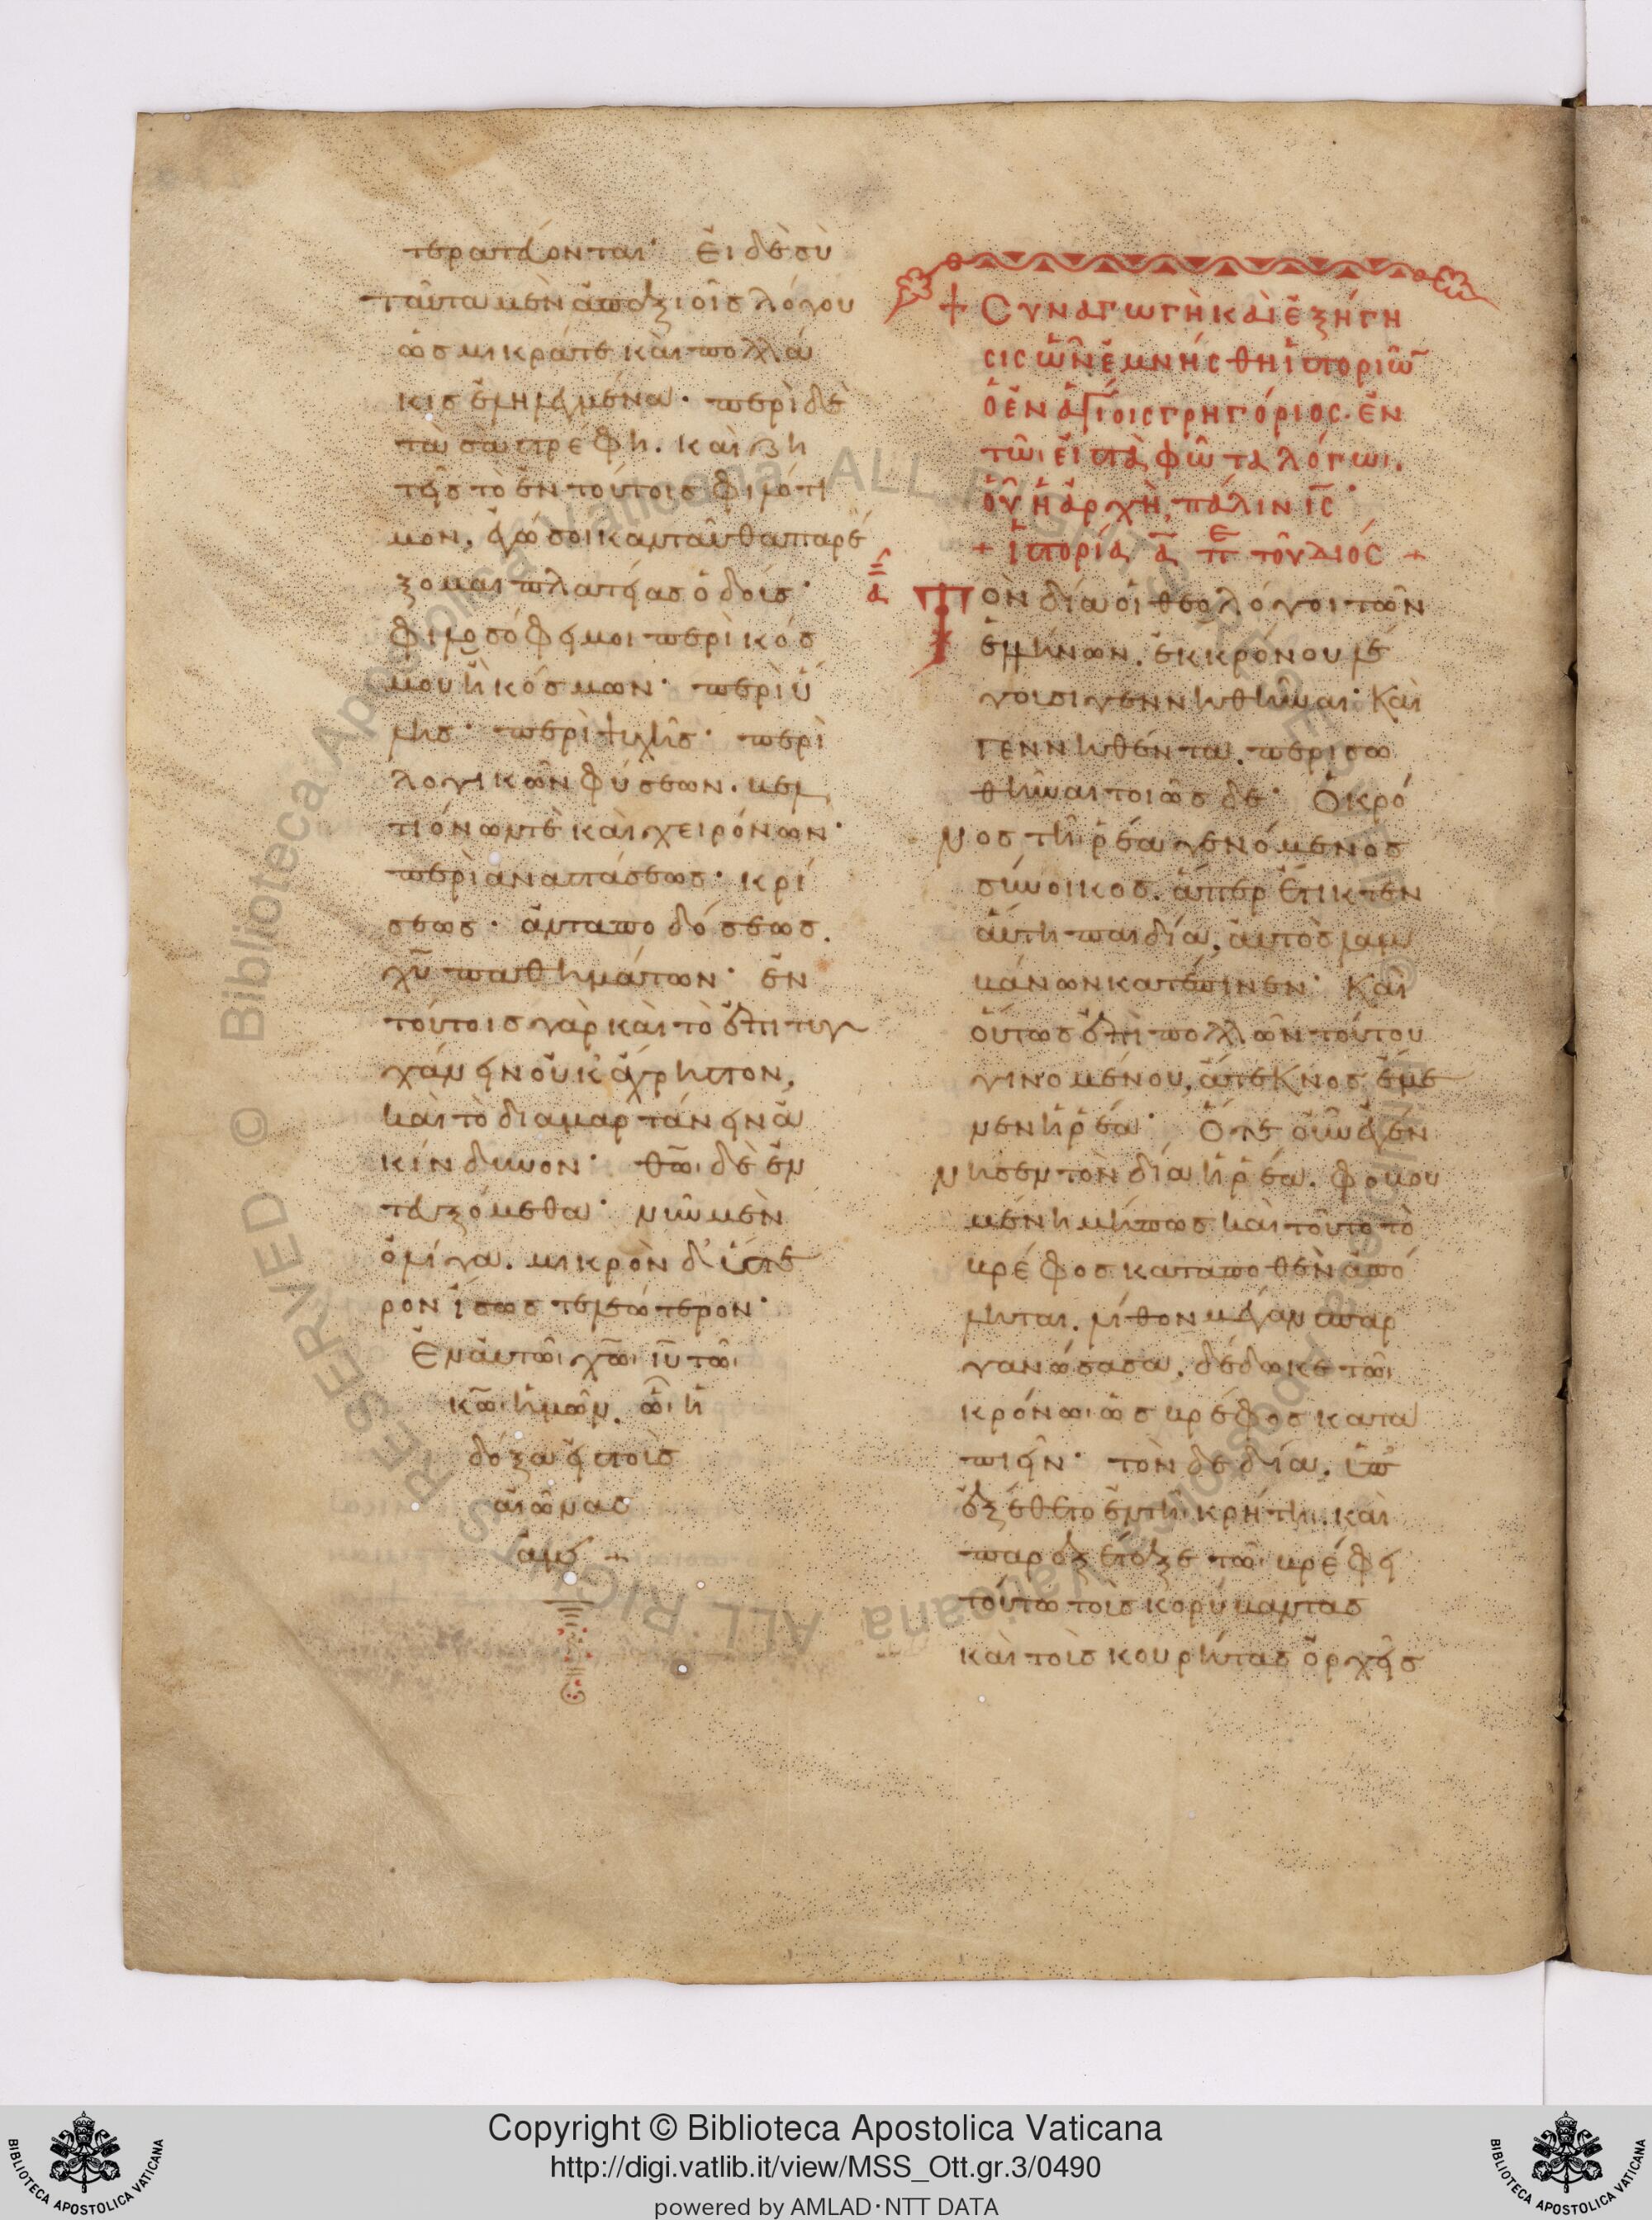 τερατεύονται· Ἐι δὲ σὺ
ταῦτα μὲν ἀπαξιοῖς λόγου
ὡς μικράτε καὶ πολλά
κις ἐληλεγμένα· περὶ δὲ
τὰ σὰ στρέφη. καὶ ζη
τεῖς τὸ ἐν τούτοις φιλότι
μον, ἐγώ σοι κἀνταῦθα παρέ
ξομαι πλατείας ὁδούς·
φιλοσόφει μοι περὶ κόσ
μου ἢ κόσμων· περὶ ὕ
λης· περὶ ψυχῆς· περὶ
λογικῶν φύσεων. βελ
τιόνων τὲ καὶ χειρόνων·
περὶ ἀναστάσεως· κρί
σεως· ἀνταποδόσεως.
χῦ παθημάτων· ἐν
τούτοις γὰρ καὶ τὸ ἐπιτυγ
χάνειν οὐκ ἄχρηστον,
καὶ τὸ διαμαρτάνειν ἀ
κίνδυνον· θῶι δὲ ἐν
τευξόμεθα· νῦν μὲν
ὀλίγα. μικρὸν δ' ὕστε
ρον ἴσως τελεώτερον·
Ἐν αὐτῶι χῶι ιῦ τῶι
κῶι ἡμῶν. ὧι ἡ
δόξα εἰς τοὺς
αἰῶνας
ἀμήν +
+ Συναγωγὴ καὶ ἐξήγη
σις ὧν ἐμνήσθη ἱστοριῶν
ὁ ἐν ἁγίοις γρηγόριος· ἐν
τῶι εἰς τὰ φῶτα λόγωι.
οὗ ἡ ἀρχὴ, πάλιν ις·
+ ἱστορία α π ε τοῦ διός +
α Τὸν δία οἱ θεολόγοι τῶν
ἑλλήνων. ἐκ κρόνου λέ
γουσι γεννηθῆναι· Καὶ
γεννηθέντα. περισω
θῆναι τοιῶσδε· Ὁ κρό
νος τῆ ῥέα γενόμενος
σύνοικος. ἅπερ ἔτικτεν
αὐτῆ παιδία, αὐτὸς λαμ
βάνων κατέπινεν· Καὶ
οὕτως ἐπὶ πολλῶν τούτου
γινομένου, ἄτεκνος ἔμε
νεν ἡ ῥέα· Ὅτε οὖν ἐγέν
νησεν τὸν δία ἡ ῥέα. φοβου
μένη μήπως καὶ τοῦτο τὸ
βρέφος καταποθὲν ἀπό
ληται. λίθον μέγαν σπαρ
γανώσασα. δέδωκε τῶι
κρόνωι ὡς βρέφος κατα
πιεῖν· τὸν δὲ δία. ὑπ
εξέθετο ἐν τῆι κρήτηι. καὶ
παρεξέτεξε τῶι βρέφει
τούτω τοὺς κορύβαντας
καὶ τοὺς κουρήτας ὀρχεῖσ
Copyright © Biblioteca Apostolica Vaticana
http://digi.vatlib.it/view/MSS_Ott.gr.3/0490
powered by AMLAD·NTT DATA